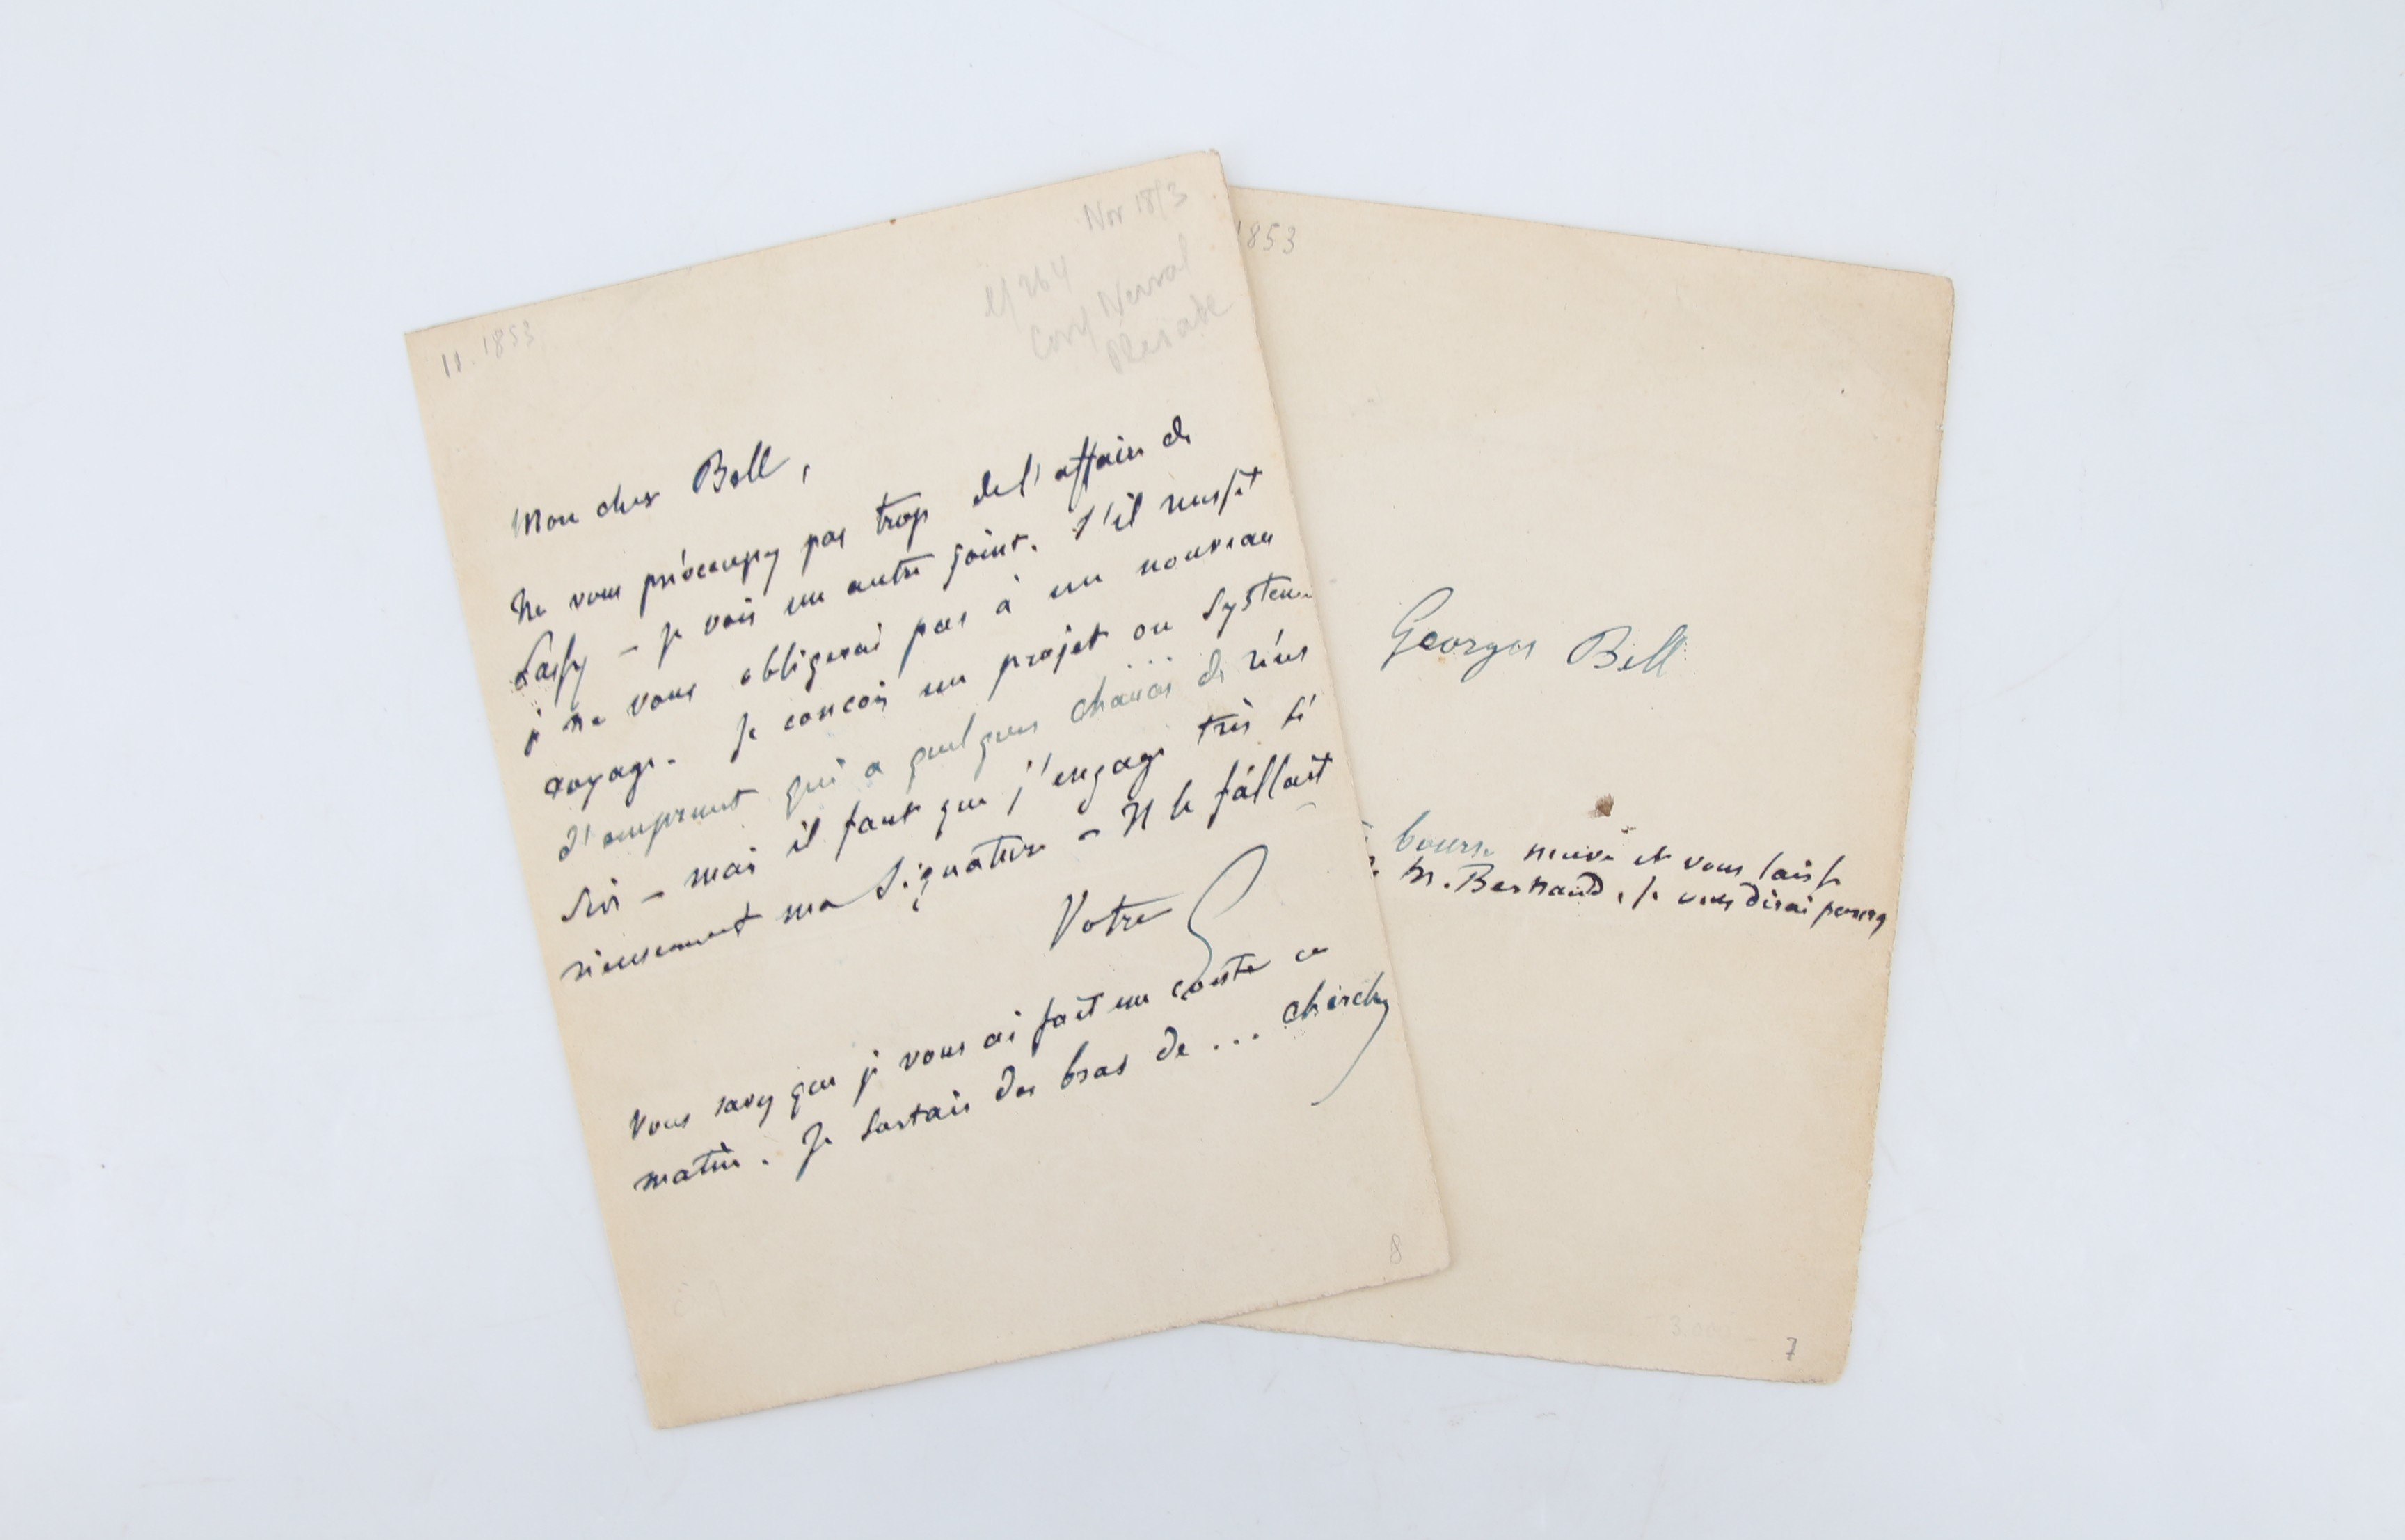 11.1853
Nov 1853
Corr Nerval
Pléiade
Mon cher Bell,
Ne vous préocupez pas trop de l'affaire de
je vois un autre joint. S'il
je ne vous obligerai pas à un nouveau
voyage. Je conçois un projet ou système
d'emprunt qui a quelques chances de réus
sir – mais il faut que j'engage très sé
rieusement ma signature – Il le fallait
Votre
Vous savez que je vous ai fait un conte ce
matin. Je sortais des bras de ... cherchez
8
1853
Georges Bell
bourse neuve et vous laisse
M. Bernard, je vous dirai pourq
7